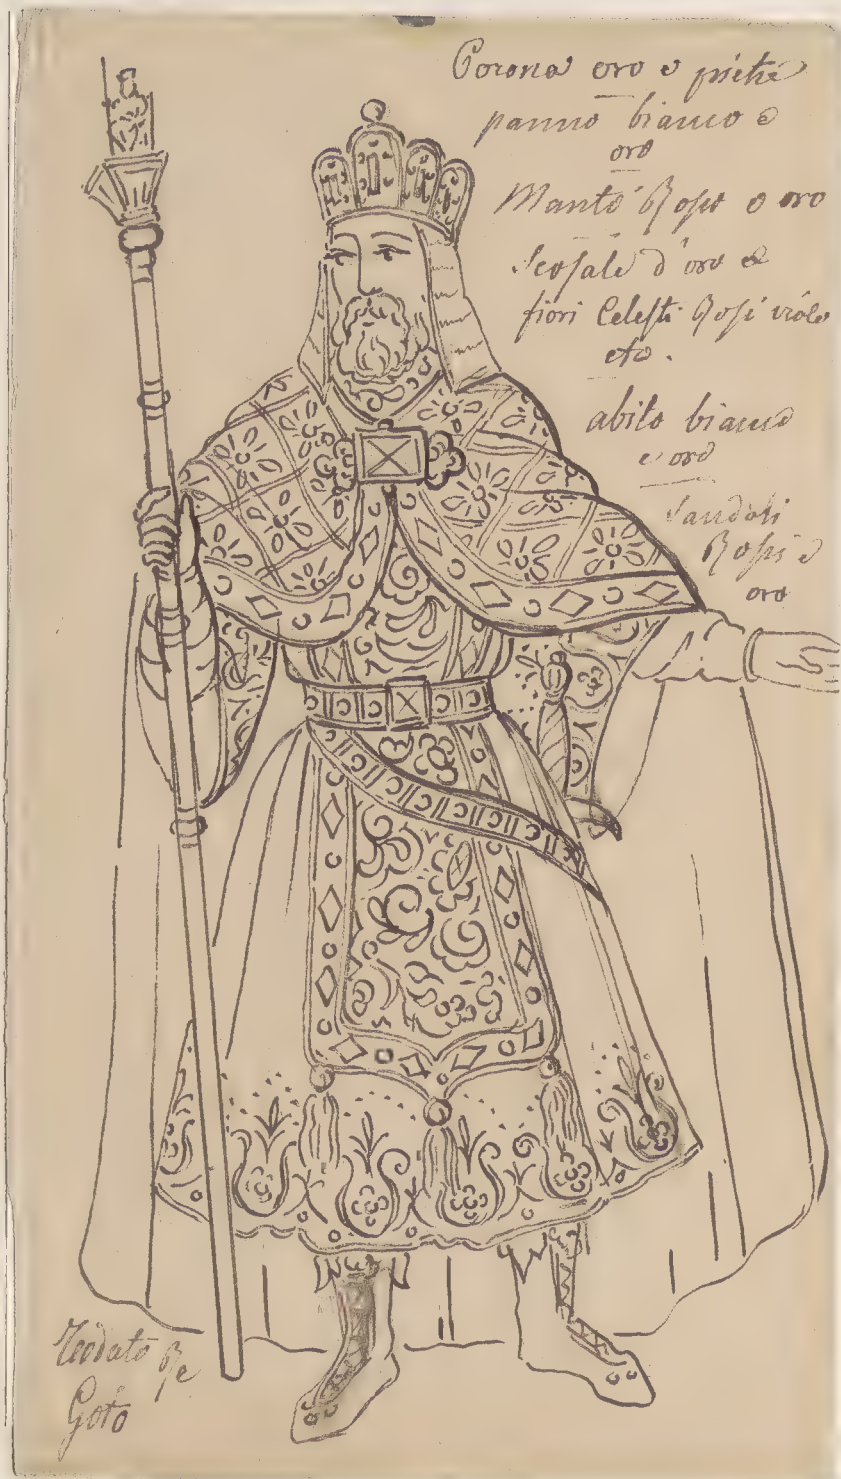 Corona oro e pietre
panno bianco e
oro
Manto Rosso e oro
d'oro e
fiori Celesti Rosi viole
etc.
abito bianco
e oro
Sandali
Rossi e
oro
Teodato Re
Goto